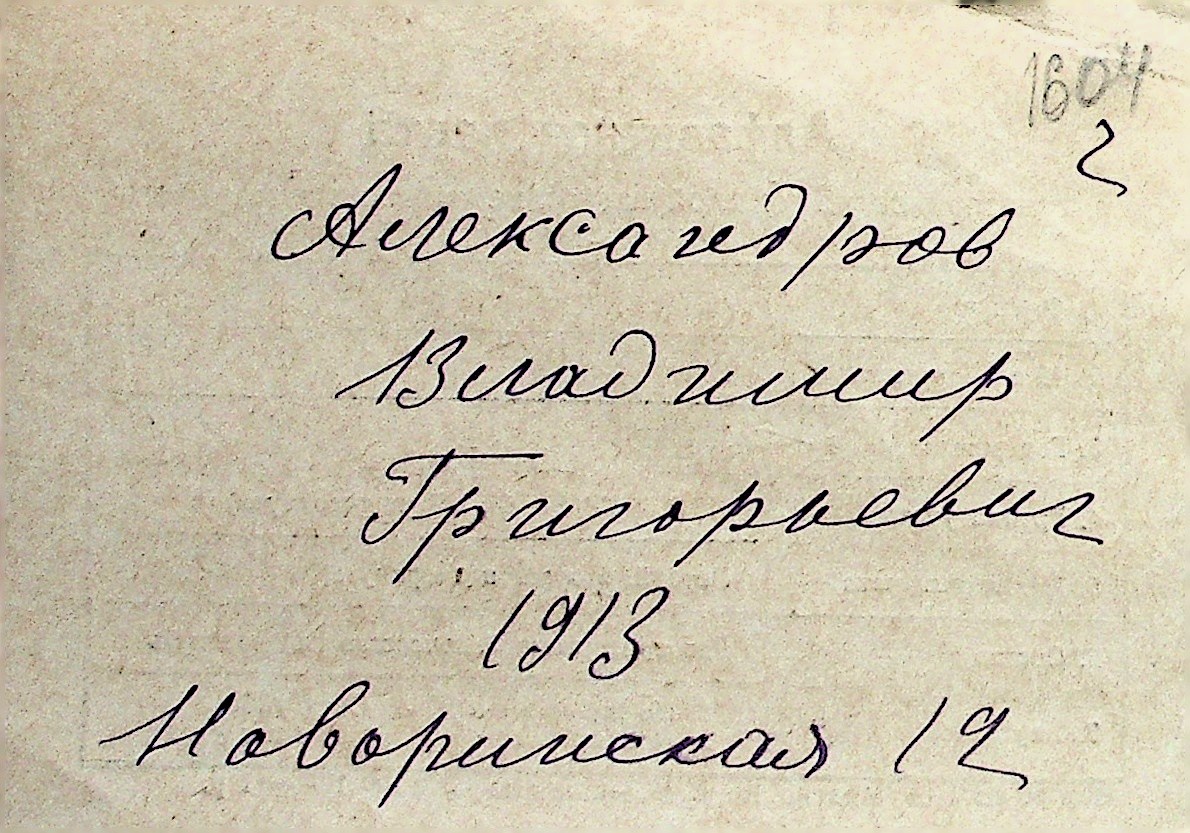 1604
2
Александров
Владимир
Григорьевич
1913
Новоринская 12